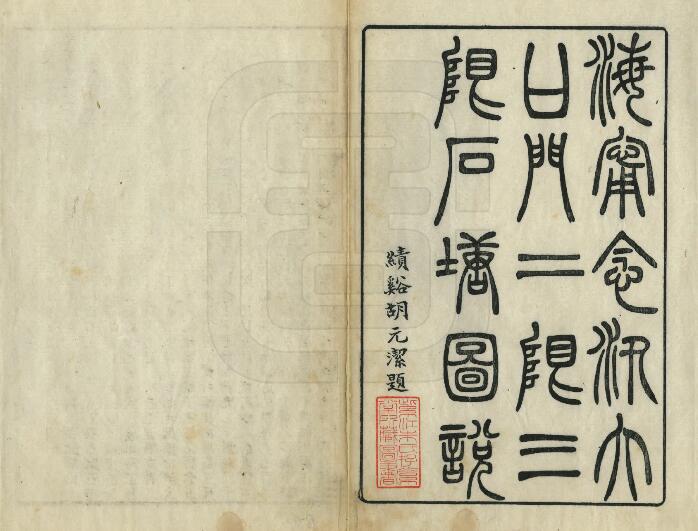 海甯念汛大
口門二限三
限石塘圖說
績谿胡元潔題